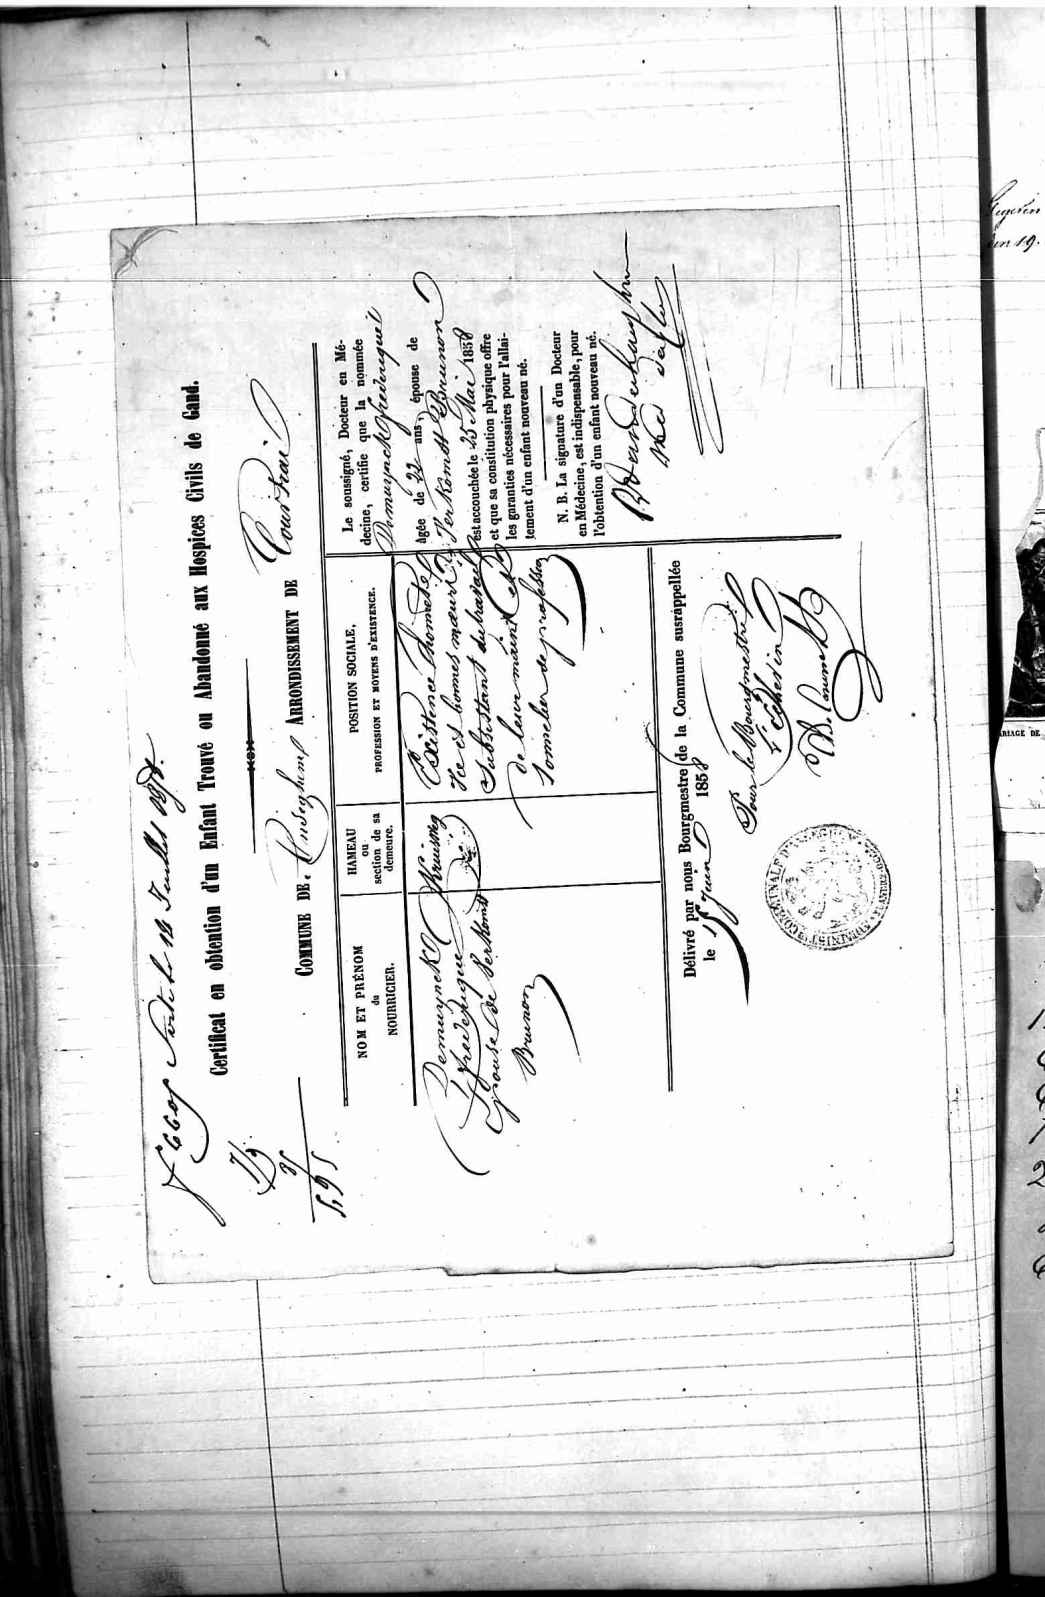 Sorti le 12 Juillet 1858.
Certificat en obtention d'un Enfant Trouvé ou Abandonné aux Hospices Civils de Gand.
COMMUNE DE Anseghem ARRONDISSEMENT DE Courtrai
NOM ET PRÉNOM
du
NOURRICIER.
HAMEAU
ou
section de sa
demeure.
POSITION SOCIALE,
PROFESSION ET MOYENS D'EXISTENCE.
Demuynck
épouse de Verkomst
Brunon
Kruisweg
Existence honnête
de bonnes mœurs
Subsistant du travail
de leurs mains
tonnelier de profession
Le soussigné, Docteur en Mé-
decine, certifie que la nommée
Demuynck
âgée de 22 ans, épouse de
Verkomst Brunon
est accouchée le 25 Mai 1858
et que sa constitution physique offre
les garanties nécessaires pour l'allai-
tement d'un enfant nouveau né.
N. B. La signature d'un Docteur
en Médecine, est indispensable, pour
l'obtention d'un enfant nouveau né.
Délivré par nous Bourgmestre de la Commune susrappellée
le 15 Juin 1858
Pour le Bourgmestre
l'échevin
ARIAGE DE